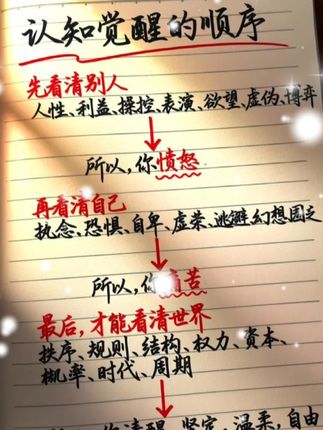 认知觉醒的顺序
先看清别人
人性、利益、操控、表演、欲望、虚伪、博弈
所以,你愤怒
再看清自己
执念、恐惧、自卑、虚荣、逃避幻想匮乏
所以,你痛苦
最后,才能看清世界
秩序、规则、结构、权力、资本、
概率、时代、周期
清醒、坚定、温柔,自由